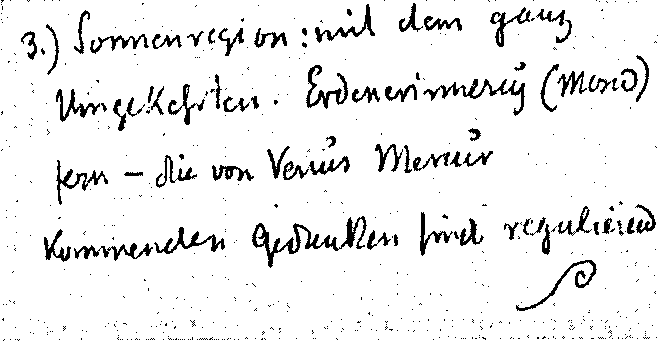 3.) Sonnenregion: mit dem ganz
Umgekehrten. Erdenerinnerung (Mond)
fern – die von Venus Merkur
kommenden Gedanken sind regulierend